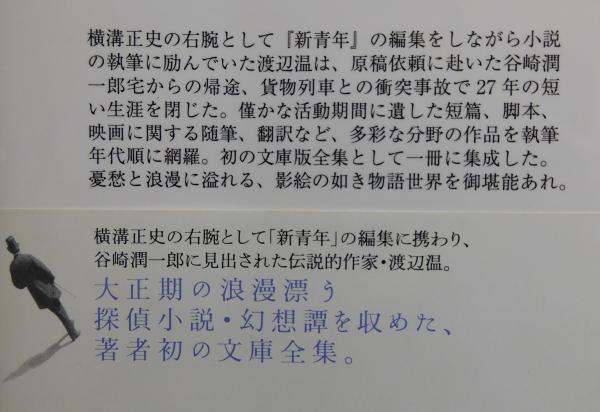 横溝正史の右腕として『新青年』の編集をしながら小説
の執筆に励んでいた渡辺温は、原稿依頼に赴いた谷崎潤
一郎宅からの帰途、貨物列車との衝突事故で27年の短
い生涯を閉じた。僅かな活動期間に遺した短篇、脚本、
映画に関する随筆、翻訳など、多彩な分野の作品を執筆
年代順に網羅。初の文庫版全集として一冊に集成した。
憂愁と浪漫に溢れる、影絵の如き物語世界を御堪能あれ。
横溝正史の右腕として「新青年」の編集に携わり、
谷崎潤一郎に見出された伝説的作家・渡辺温。
大正期の浪漫漂う
探偵小説・幻想譚を収めた、
著者初の文庫全集。